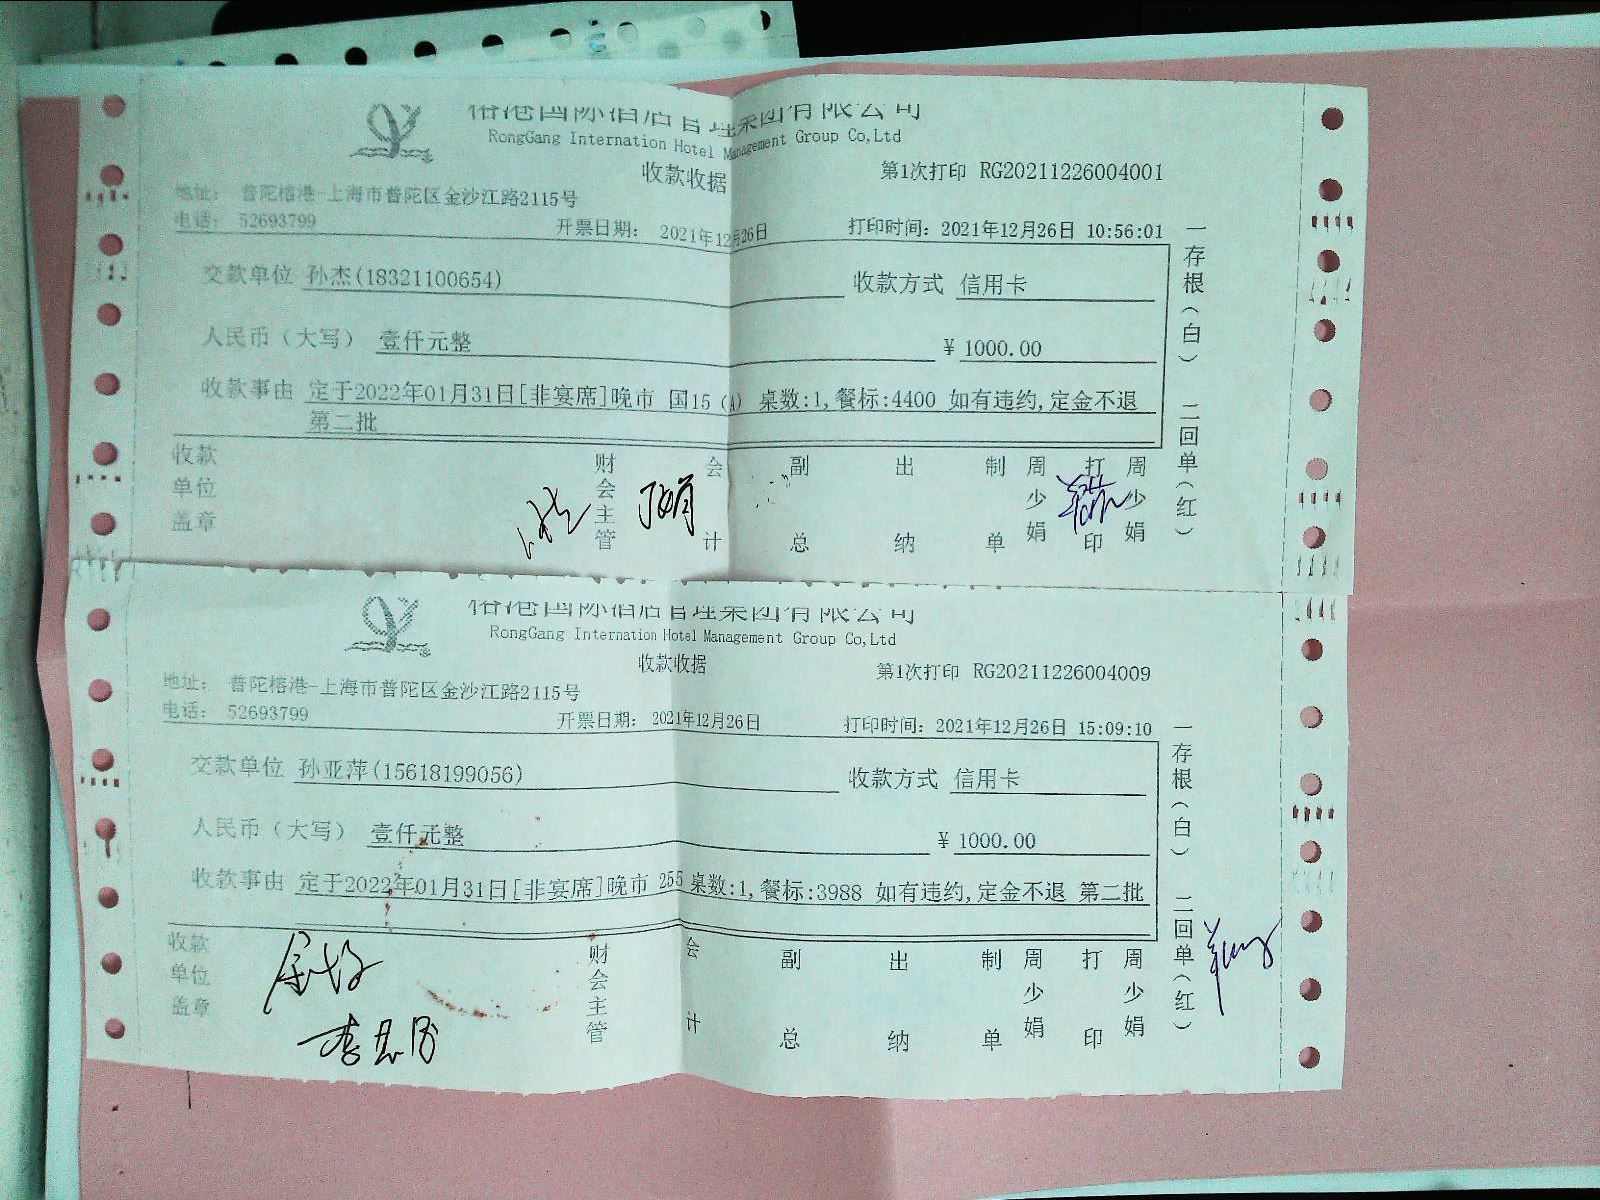 榕港国际酒店管理集团有限公司
RongGang International Hotel Management Group Co,Ltd
收款收据
第1次打印 RG20211226004001
地址： 普陀榕港-上海市普陀区金沙江路2115号
电话： 52693799
开票日期： 2021年12月26日
打印时间：2021年12月26日 10:56:01
交款单位 孙杰(18321100654)
收款方式 信用卡
人民币（大写） 壹仟元整
￥1000.00
收款事由 定于2022年01月31日[非宴席]晚市 国15（A） 桌数:1,餐标:4400 如有违约,定金不退
第二批
收款单位盖章
财会主管
会计
副总
出纳
制单
周少娟
打印
周少娟
一存根（白） 二回单（红）
榕港国际酒店管理集团有限公司
RongGang International Hotel Management Group Co,Ltd
收款收据
第1次打印 RG20211226004009
地址： 普陀榕港-上海市普陀区金沙江路2115号
电话： 52693799
开票日期： 2021年12月26日
打印时间：2021年12月26日 15:09:10
交款单位 孙亚萍(15618199056)
收款方式 信用卡
人民币（大写） 壹仟元整
￥1000.00
收款事由 定于2022年01月31日[非宴席]晚市 255 桌数:1,餐标:3988 如有违约,定金不退 第二批
收款单位盖章
财会主管
会计
副总
出纳
制单
周少娟
打印
周少娟
一存根（白） 二回单（红）